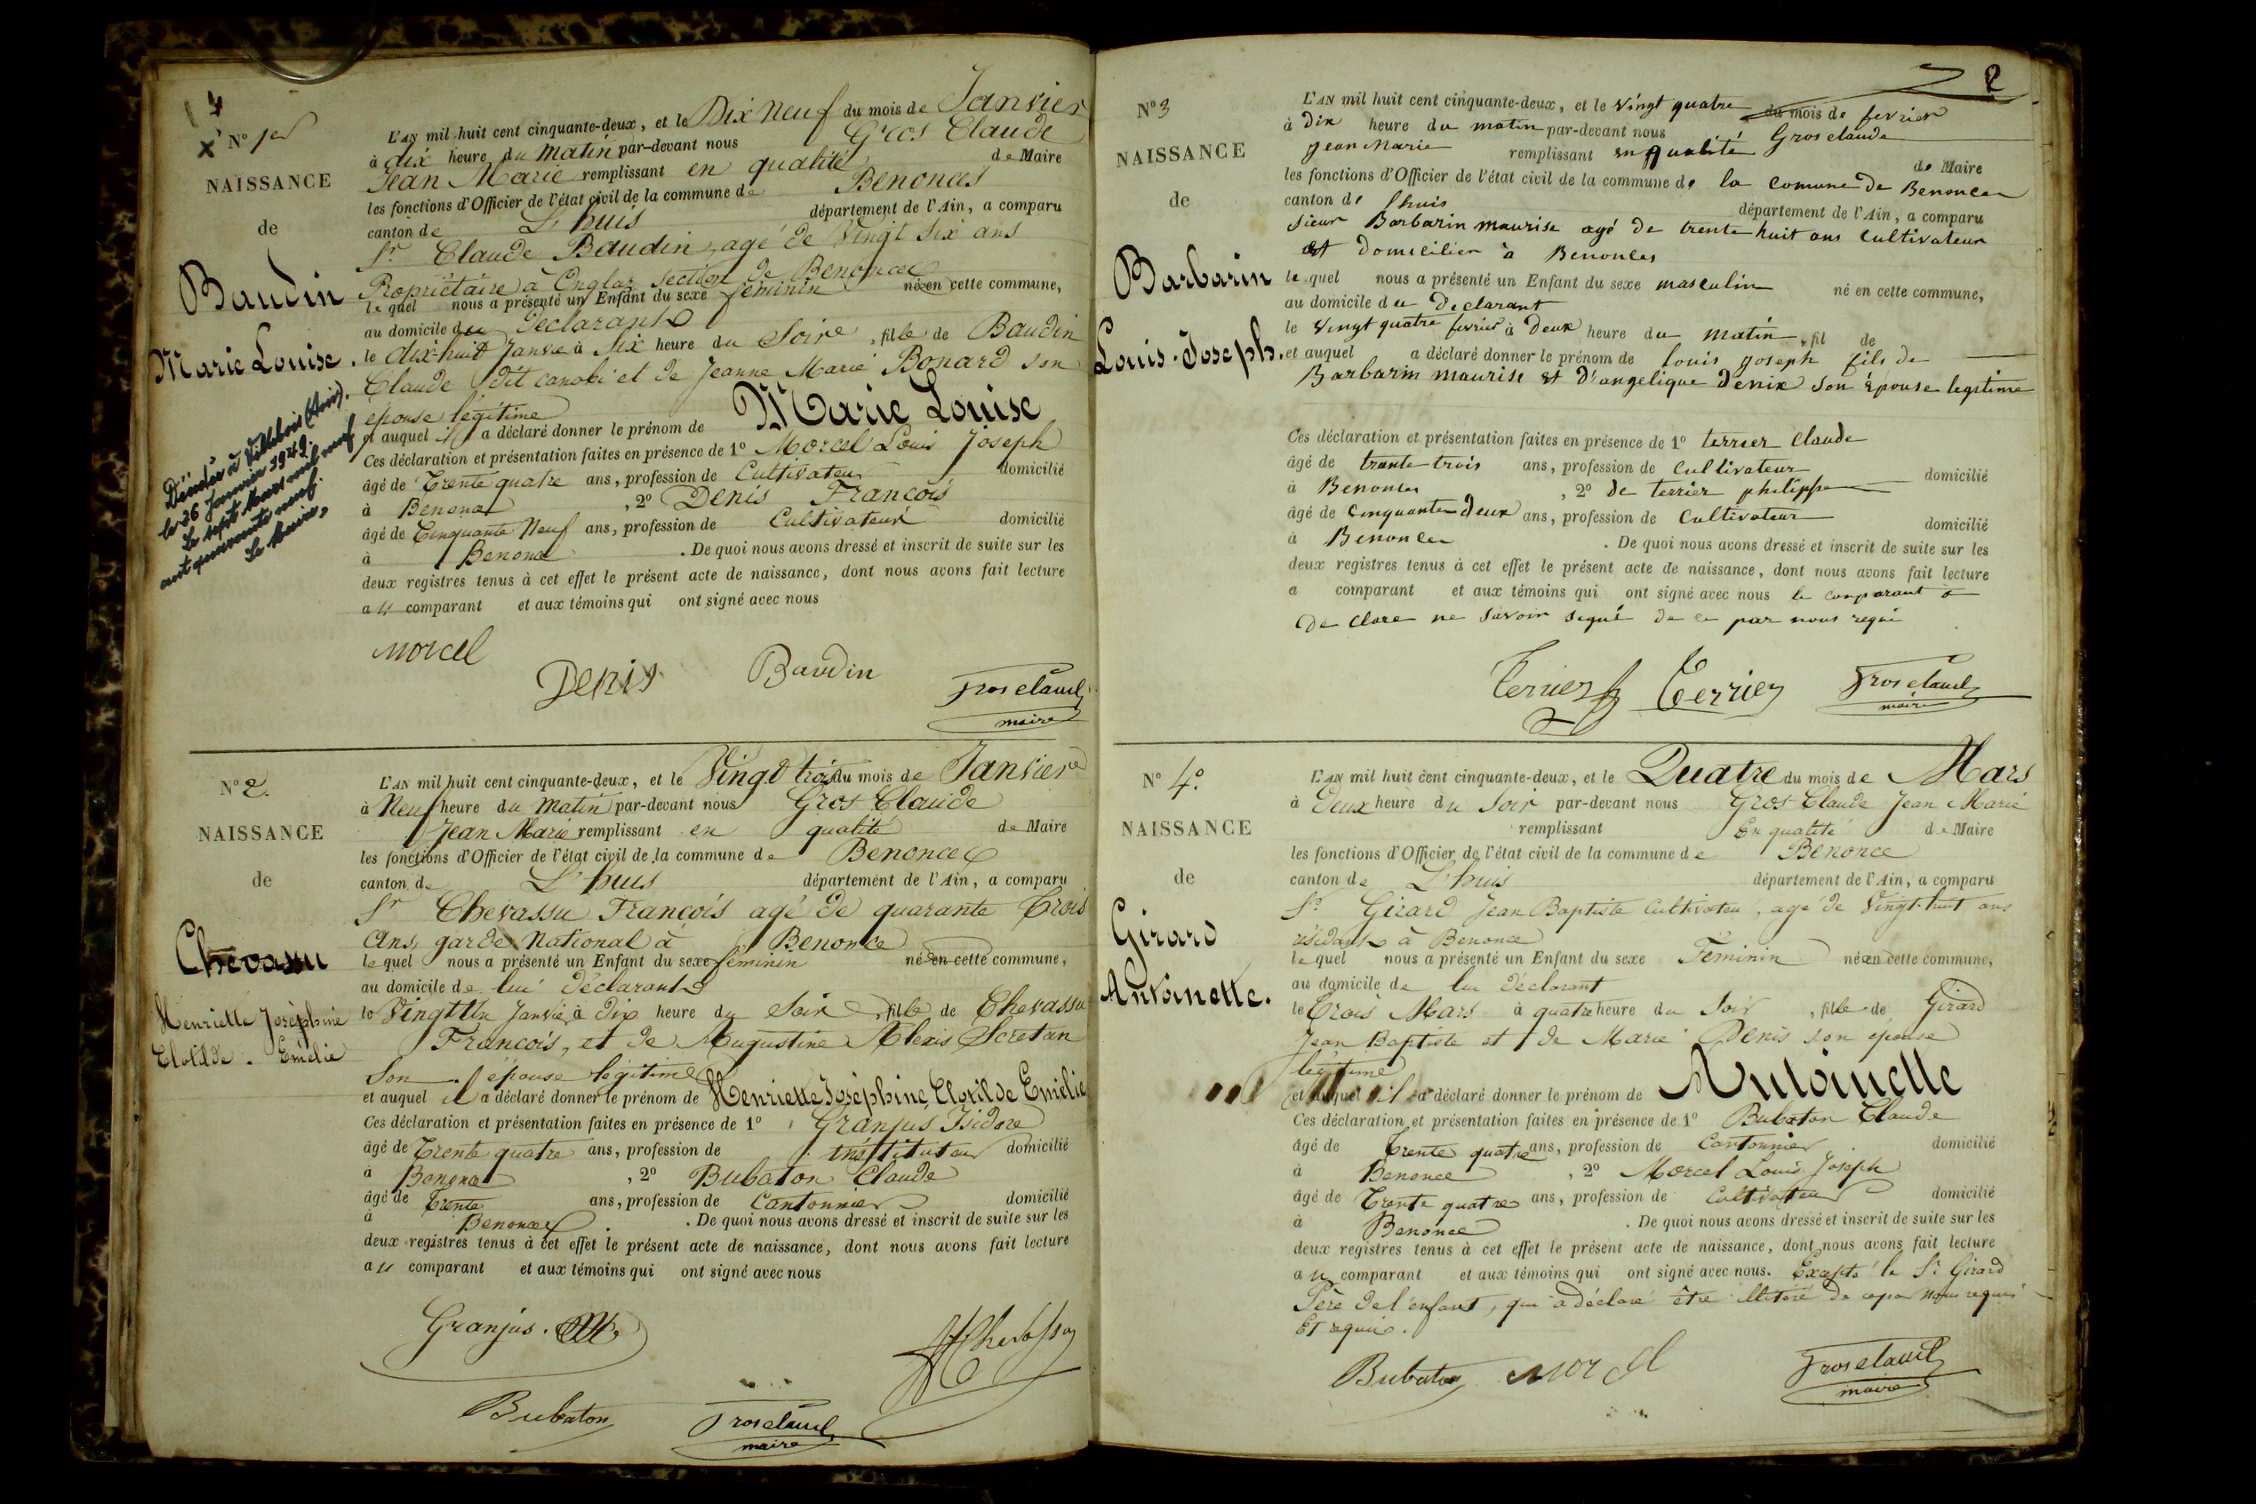 N° 1er
NAISSANCE
de
Baudin
Marie Louise.
Décédée à Villebois (Ain).
le 26 Janvier 1949.
Le sept Mars mil neuf
cent quarante neuf.
Le Maire,
L'AN mil huit cent cinquante-deux, et le Dix Neuf du mois de Janvier
à dix heure du matin par-devant nous Gros Claude
Jean Marie remplissant en qualité de Maire
les fonctions d'Officier de l'état civil de la commune de Benonces
canton de L'huis département de l'Ain, a comparu
Sr Claude Baudin, agé de Vingt Six ans
Propriétaire à Onglas Section de Benonces
le quel nous a présenté un Enfant du sexe féminin né en cette commune,
au domicile du Déclarant
le dix-huit Janvier à Six heure du Soir, fille de Baudin
Claude dit canobi et de Jeanne Marie Bonard son
épouse légitime
et auquel il a déclaré donner le prénom de Marie Louise
Ces déclaration et présentation faites en présence de 1° Morcel Louis Joseph
âgé de Trente quatre ans, profession de Cultivateur domicilié
à Benonce, 2° Denis François
âgé de Cinquante Neuf ans, profession de Cultivateur domicilié
à Benonce. De quoi nous avons dressé et inscrit de suite sur les
deux registres tenus à cet effet le présent acte de naissance, dont nous avons fait lecture
au comparant et aux témoins qui ont signé avec nous
Morcel
Denis
Baudin
Grosclaude
maire
N° 2.
NAISSANCE
de
Chevassu
Henriette Joséphine
Clotilde. Emélie
L'AN mil huit cent cinquante-deux, et le Vingt trois du mois de Janvier
à Neuf heure du matin par-devant nous Gros Claude
Jean Marie remplissant en qualité de Maire
les fonctions d'Officier de l'état civil de la commune de Benonces
canton de L'huis département de l'Ain, a comparu
Sr Chevassu François agé de quarante Trois
Ans, garde National à Benonce
le quel nous a présenté un Enfant du sexe féminin né en cette commune,
au domicile de lui déclarant
le Vingt Un Janvier à Dix heure du Soir, fille de Chevassu
François, et de Augustine Alexis Scretan
Son épouse légitime
et auquel il a déclaré donner le prénom de Henriette Joséphine, Clotilde Emélie
Ces déclaration et présentation faites en présence de 1° Granjus Isidore
âgé de Trente quatre ans, profession de instituteur domicilié
à Benonce, 2° Bubaton Claude
âgé de Trente ans, profession de Cantonnier domicilié
à Benonces. De quoi nous avons dressé et inscrit de suite sur les
deux registres tenus à cet effet le présent acte de naissance, dont nous avons fait lecture
au comparant et aux témoins qui ont signé avec nous
Granjus.
Chevassu
Bubaton
Grosclaude
maire
2
N° 3
NAISSANCE
de
Barbarin
Louis-Joseph.
L'AN mil huit cent cinquante-deux, et le vingt quatre du mois de fevrier
à dix heure du matin par-devant nous Grosclaude
jean Marie remplissant en qualité de Maire
les fonctions d'Officier de l'état civil de la commune de la comune de Benonces
canton de lhuis département de l'Ain, a comparu
sieur Barbarin maurise agé de trente huit ans Cultivateur
et domicilier à Benonces
le quel nous a présenté un Enfant du sexe masculin né en cette commune,
au domicile du Declarant
le vingt quatre fevrier à Deux heure du matin, fil de
et auquel a déclaré donner le prénom de louis joseph fils de
Barbarin maurise et d'angelique denix son épouse legitime
Ces déclaration et présentation faites en présence de 1° terrier Claude
âgé de trante trois ans, profession de Cultivateur domicilié
à Benonces, 2° de terrier philippe
âgé de Cinquante deux ans, profession de Cultivateur domicilié
à Benonces. De quoi nous avons dressé et inscrit de suite sur les
deux registres tenus à cet effet le présent acte de naissance, dont nous avons fait lecture
a comparant et aux témoins qui ont signé avec nous le comparant a
de clare ne savoir signé de ce par nous requi
Terrier Terrier
Grosclaude
maire
N° 4°
NAISSANCE
de
Girard
Antoinette.
L'AN mil huit cent cinquante-deux, et le Quatre du mois de Mars
à Deux heure du Soir par-devant nous Gros Claude Jean Marie
remplissant En qualité de Maire
les fonctions d'Officier de l'état civil de la commune de Benonce
canton de L'huis département de l'Ain, a comparu
Sr Girard Jean Baptiste Cultivateur, agé de Vingt-huit ans
résidant à Benonce
le quel nous a présenté un Enfant du sexe Féminin né en cette commune,
au domicile de lui déclarant
le Trois Mars à quatre heure du Soir, fille de Girard
Jean Baptiste et de Marie Denis son épouse
légitime
et auquel il a déclaré donner le prénom de Antoinette
Ces déclaration et présentation faites en présence de 1° Bubaton Claude
âgé de Trente quatre ans, profession de Cantonnier domicilié
à Benonce, 2° Morcel Louis Joseph
âgé de Trente quatre ans, profession de Cultivateur domicilié
à Benonce. De quoi nous avons dressé et inscrit de suite sur les
deux registres tenus à cet effet le présent acte de naissance, dont nous avons fait lecture
au comparant et aux témoins qui ont signé avec nous. Excepté le Sr Girard
Père de l'enfant, qui a déclaré être illitéré de ce par nous requis
Et requis.
Bubaton Morcel
Grosclaude
maire